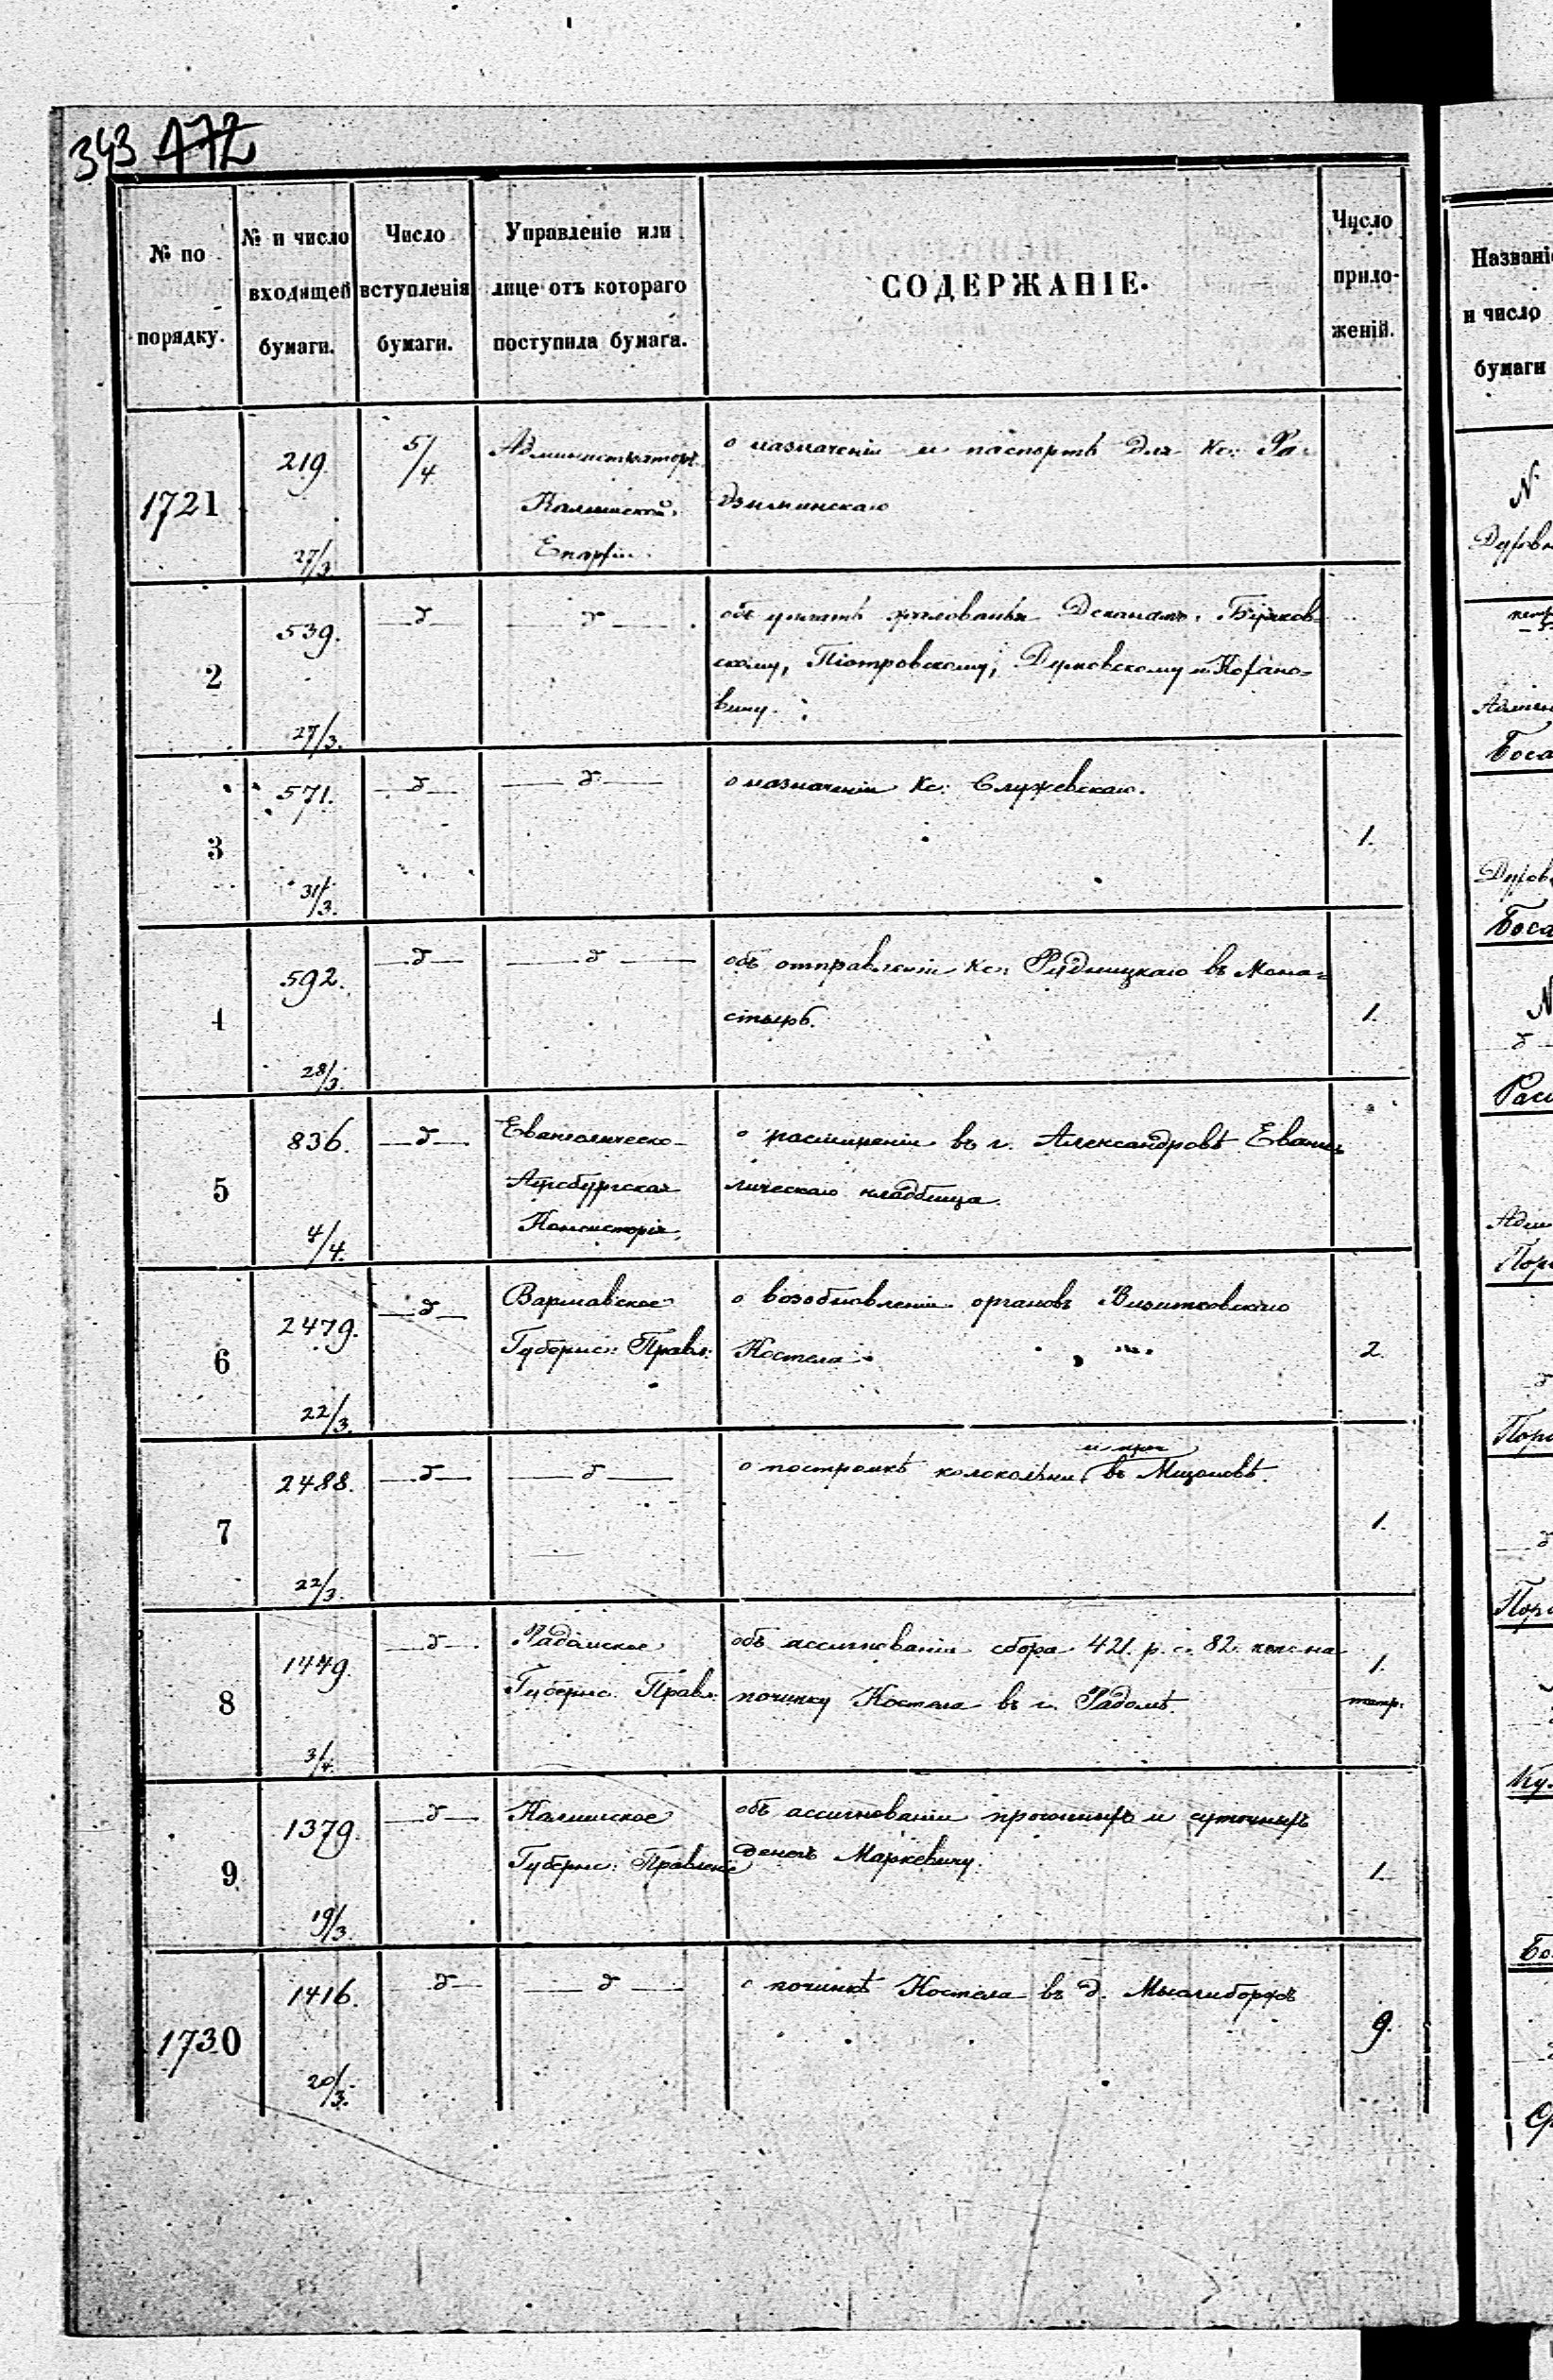 343 172
№ по порядку.
№ и число входящей бумаги.
Число вступленія бумаги.
Управленіе или лице отъ котораго поступила бумага.
СОДЕРЖАНІЕ.
Число приложеній.
1721
219.
27/3
5/4.
Администраторъ
Калишской
Епархіи.
о назначеніи и паспортѣ для Кс: Ра-
дзиминскаго
2
539.
27/3.
—д—
—д—
объ уплатѣ жалованья Деканамъ:
скому, Піотровскому,
вичу.
3
571.
31/3.
—д—
—д—
о назначеніи Кс: Служевскаго.
1.
4
592.
28/3.
—д—
—д—
объ отправленіи Кс: Рудницкаго въ Мона-
стырь.
1.
5
836.
4/4.
—д—
Евангелическо-
Аугсбургская
Консисторія.
о расширеніи въ г. Александровѣ Еванге-
лическаго кладбища.
6
2479.
22/3.
—д—
Варшавское
Губернс: Правл:
о возобновленіи органовъ Визитковскаго
Костела.
2.
7
2488.
22/3.
—д—
—д—
и проч
о постройкѣ колокольни въ Мщоновѣ.
1.
8
1449.
3/4.
—д—
Радомское
Губернс. Правл:
объ ассигнованіи сбора 421. р. с. 82. коп: на
починку Костела въ г. Радомѣ.
1.
9
1379.
19/3.
—д—
Калишское
Губернс: Правленіе
объ ассигнованіи прогонныхъ и суточныхъ
денегъ Маркевичу.
1.
1730
1416.
20/3.
—д—
—д—
о починкѣ Костела въ д. Мыслиборжѣ
9.
Названі
и число
бумаги
N.
Боса
Боса
N
д
Расп
Адми
Поро
д
д
Ку.